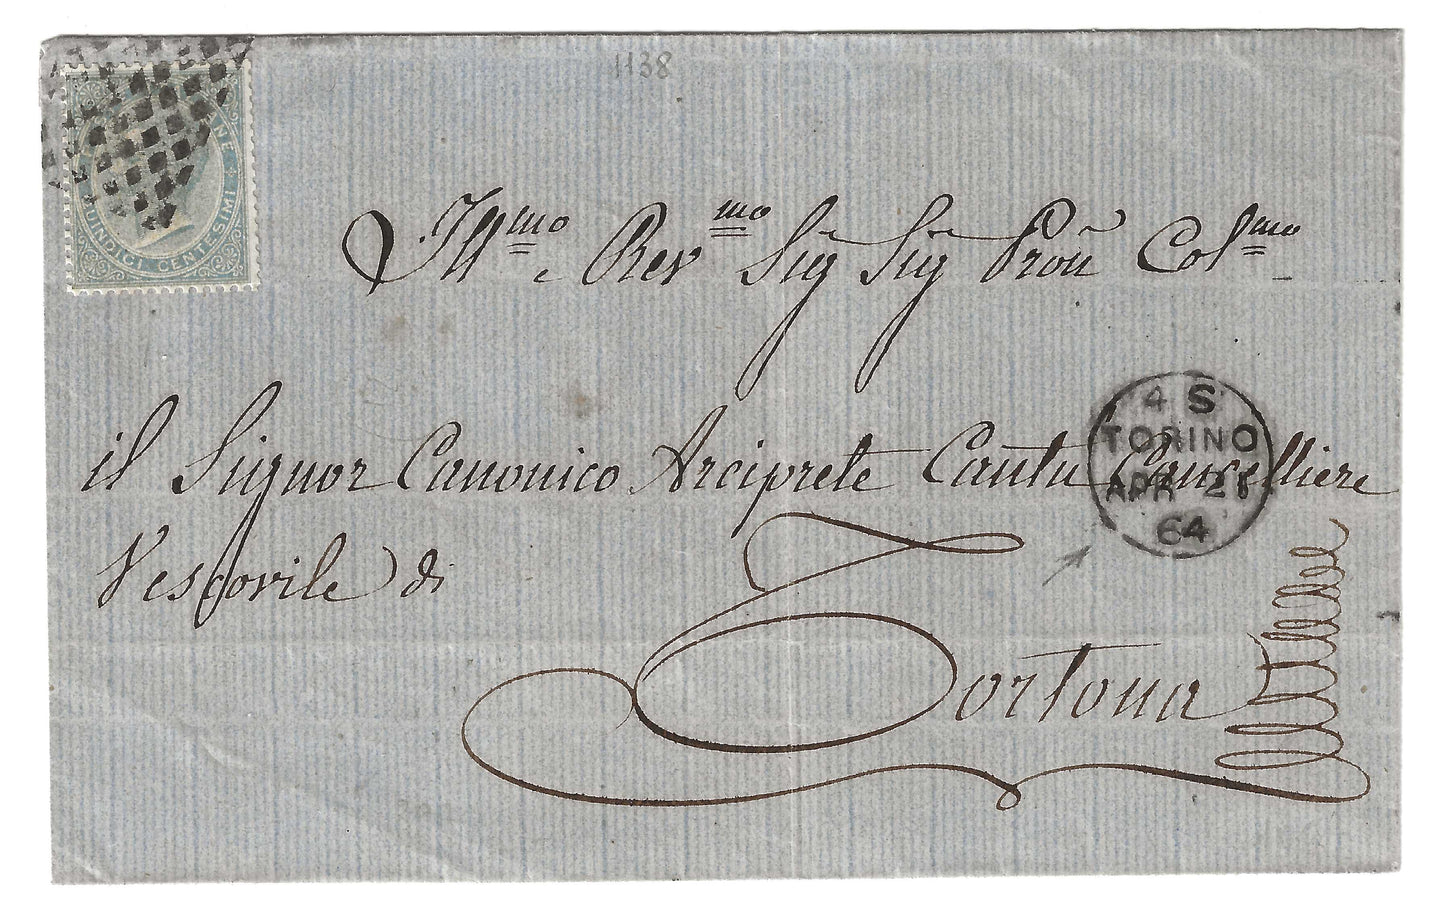 1138
NE
QUINDICI CENTESIMI
Ill.mo e Rev.mo Sig Sig Pron Col.mo
il Signor Canonico Arciprete Cantu Cancelliere
Vescovile di
Tortona
4 S
TORINO
APR 21
64